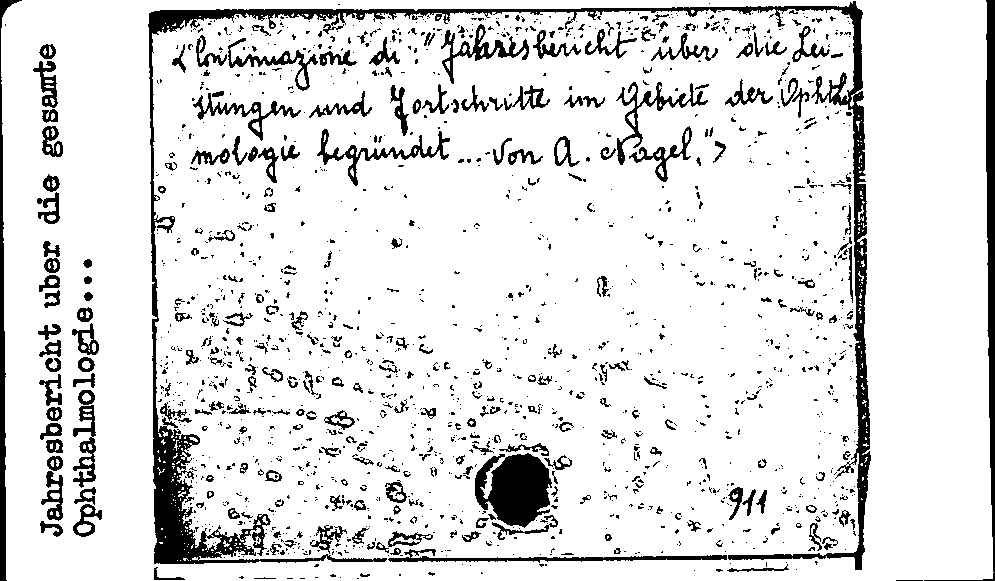 Jahresbericht uber die gesamte
Ophthalmologie...
<Continuazione di: "Jahresbericht über die Lei-
stungen und Fortschritte im Gebiete der Ophthal
mologie begründet ... von A. Nagel.">
911